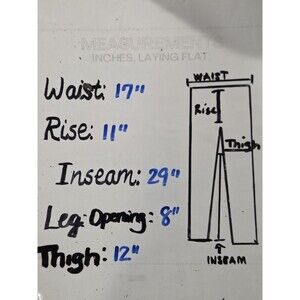 MEASUREMENTS
INCHES, LAYING FLAT
Waist: 17"
Rise: 11"
Inseam: 29"
Leg Opening: 8"
Thigh: 12"
WAIST
Rise
Thigh
INSEAM